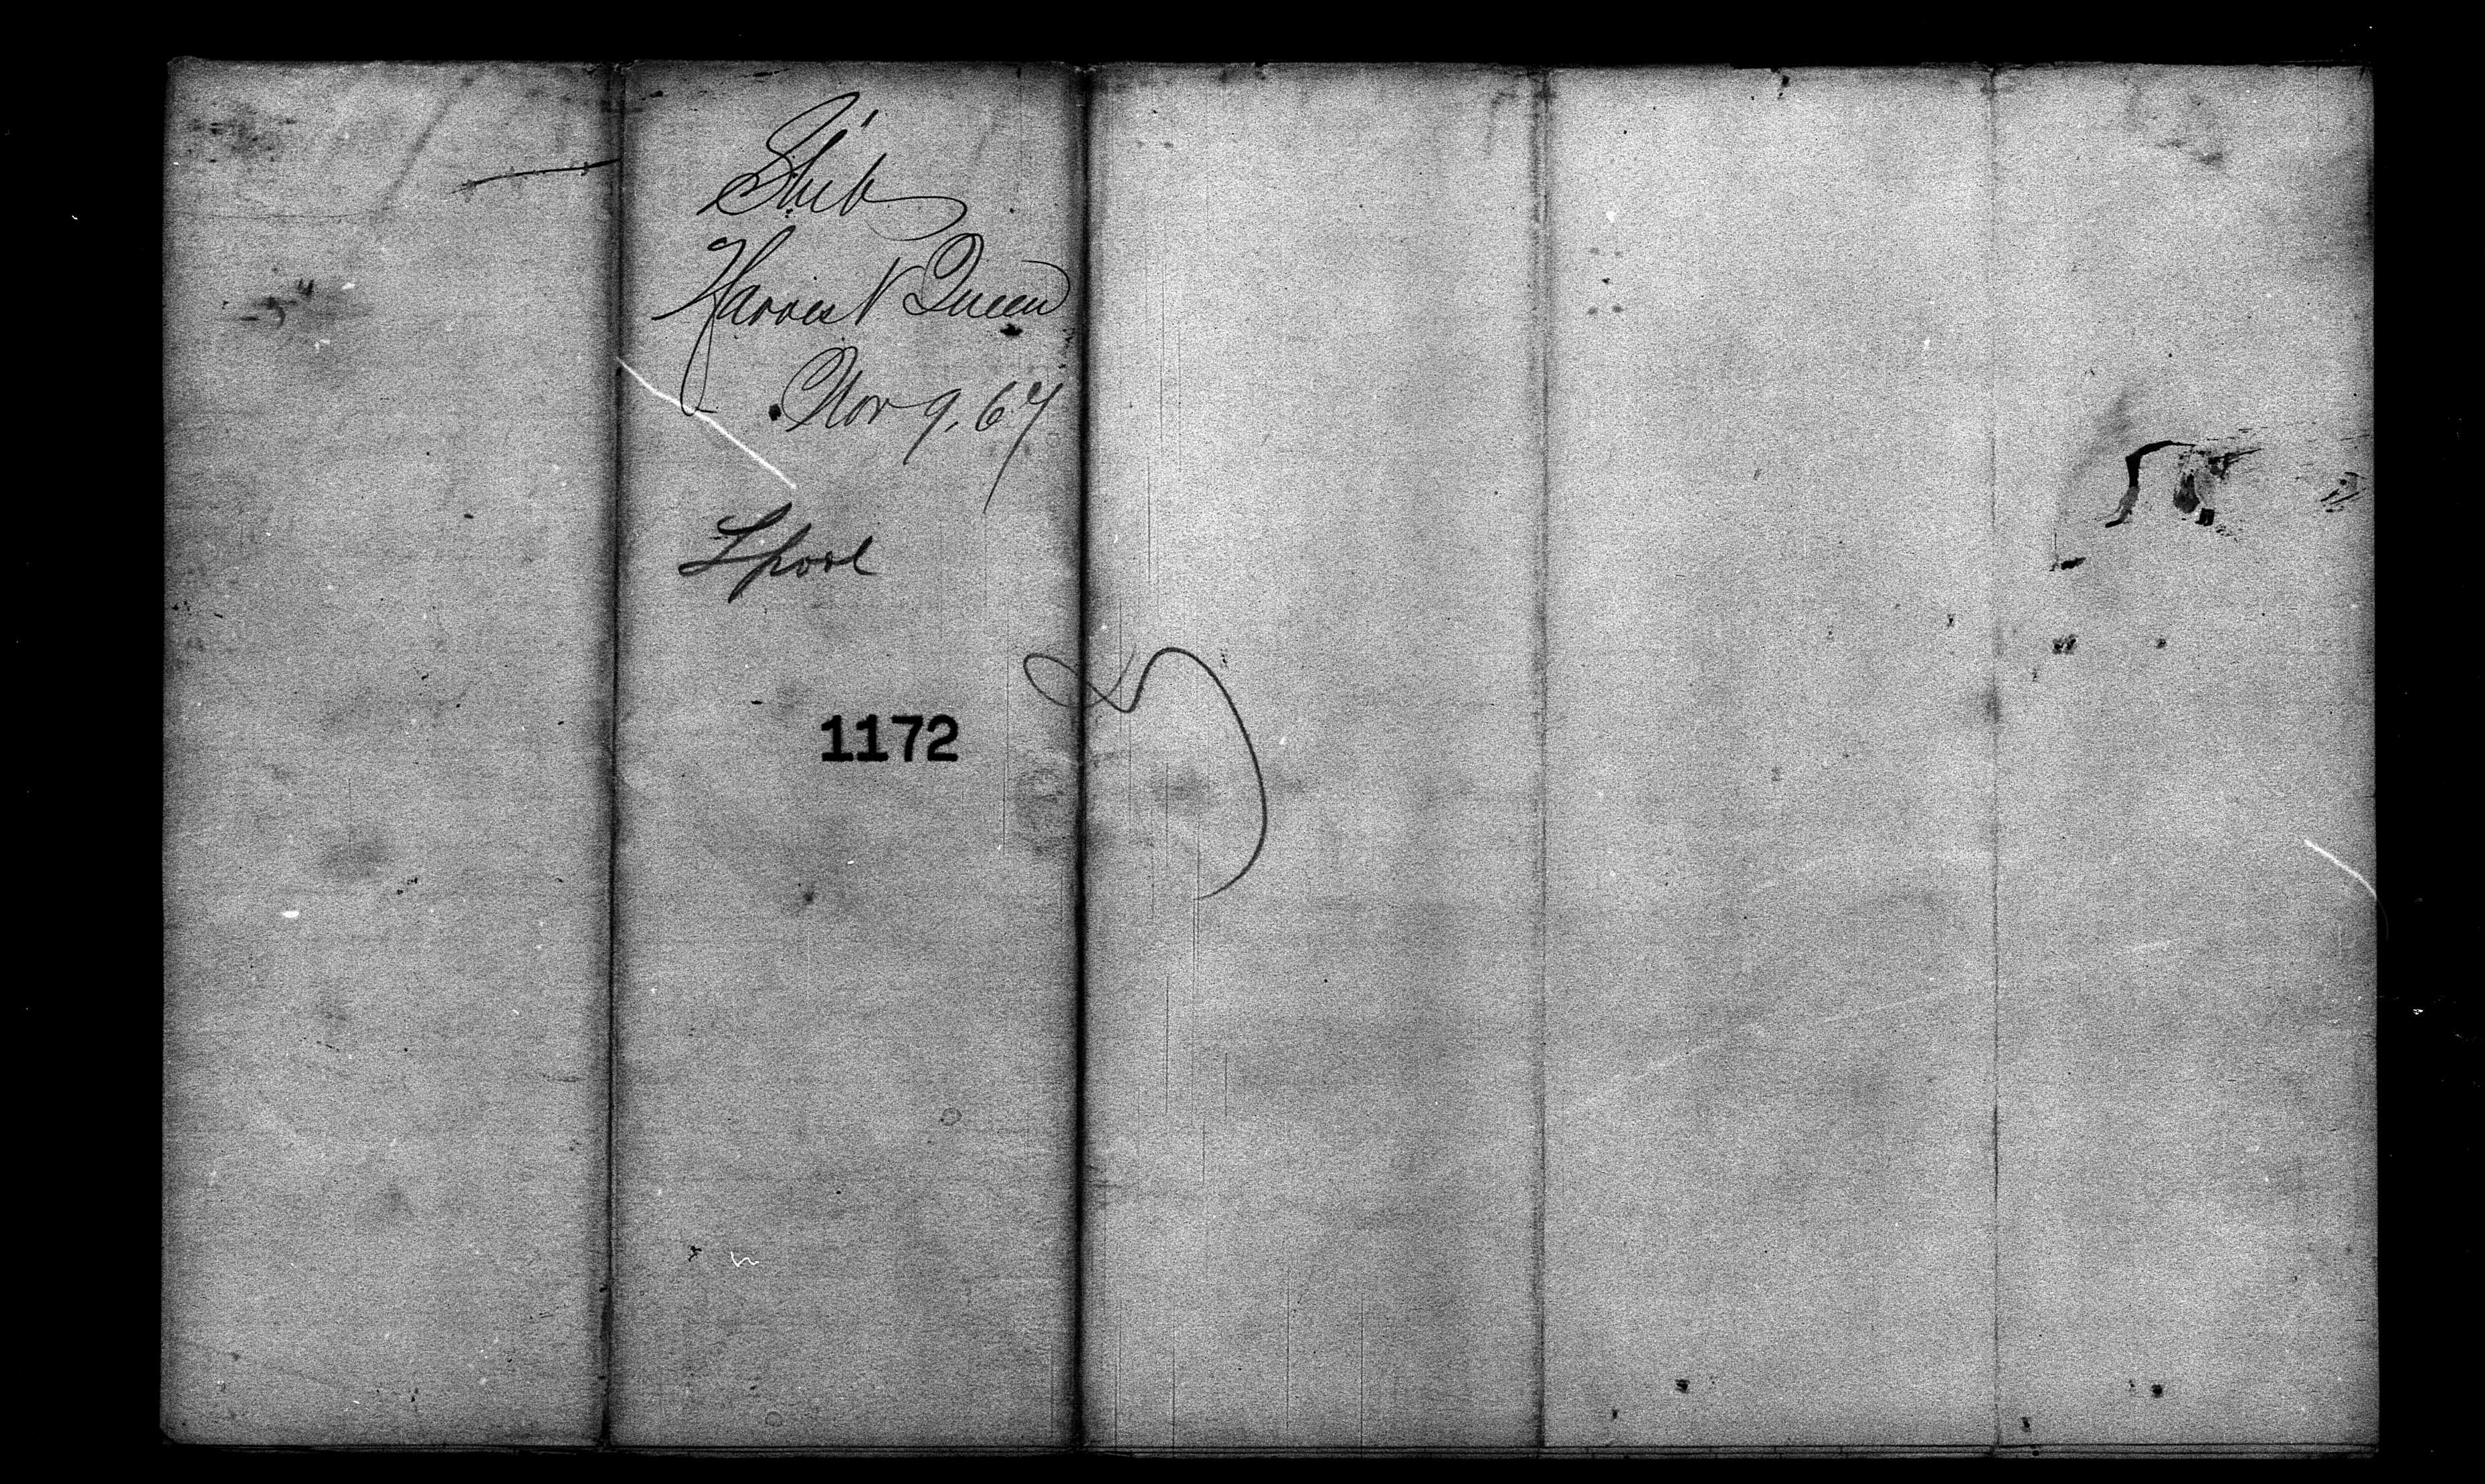 Ship
Harvest Queen
Nov 9, 67
Lpool
1172